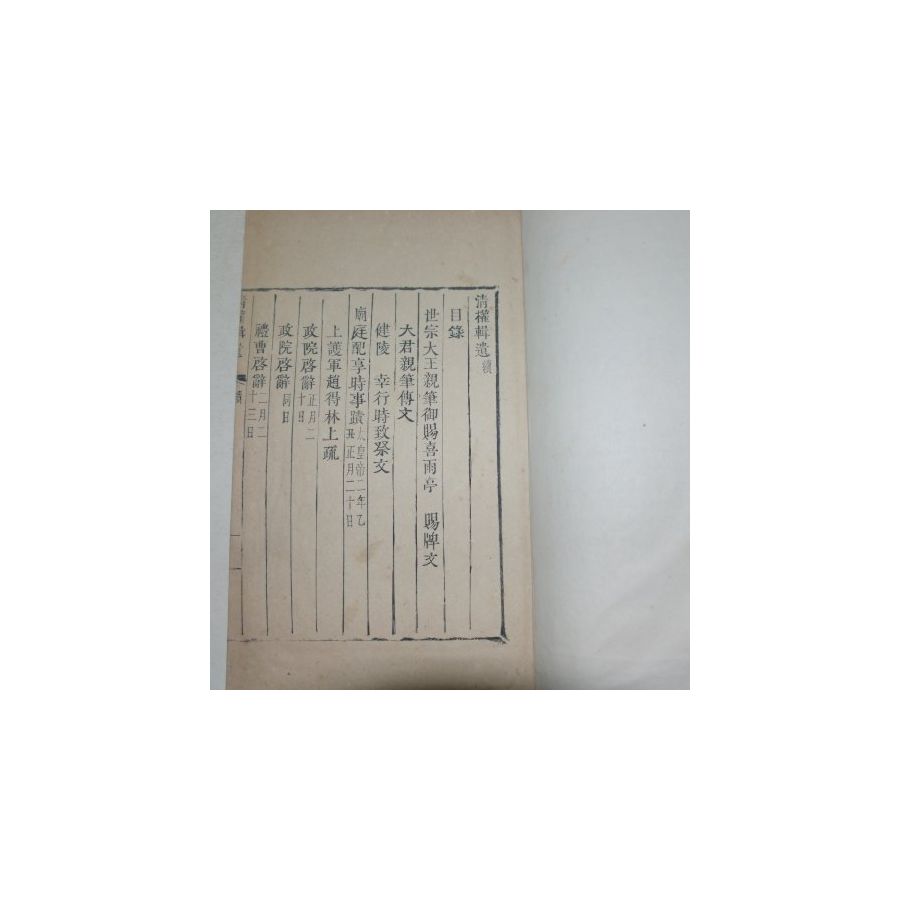 淸權輯遺續
目錄
世宗大王親筆御賜喜雨亭 賜牌文
大君親筆傳文
健陵 幸行時致祭文
廟庭配享時事蹟太皇帝二年乙丑正月二十日
上護軍趙得林上疏
政院啓辭正月二十日
政院啓辭同日
禮曹啓辭二月二十三日